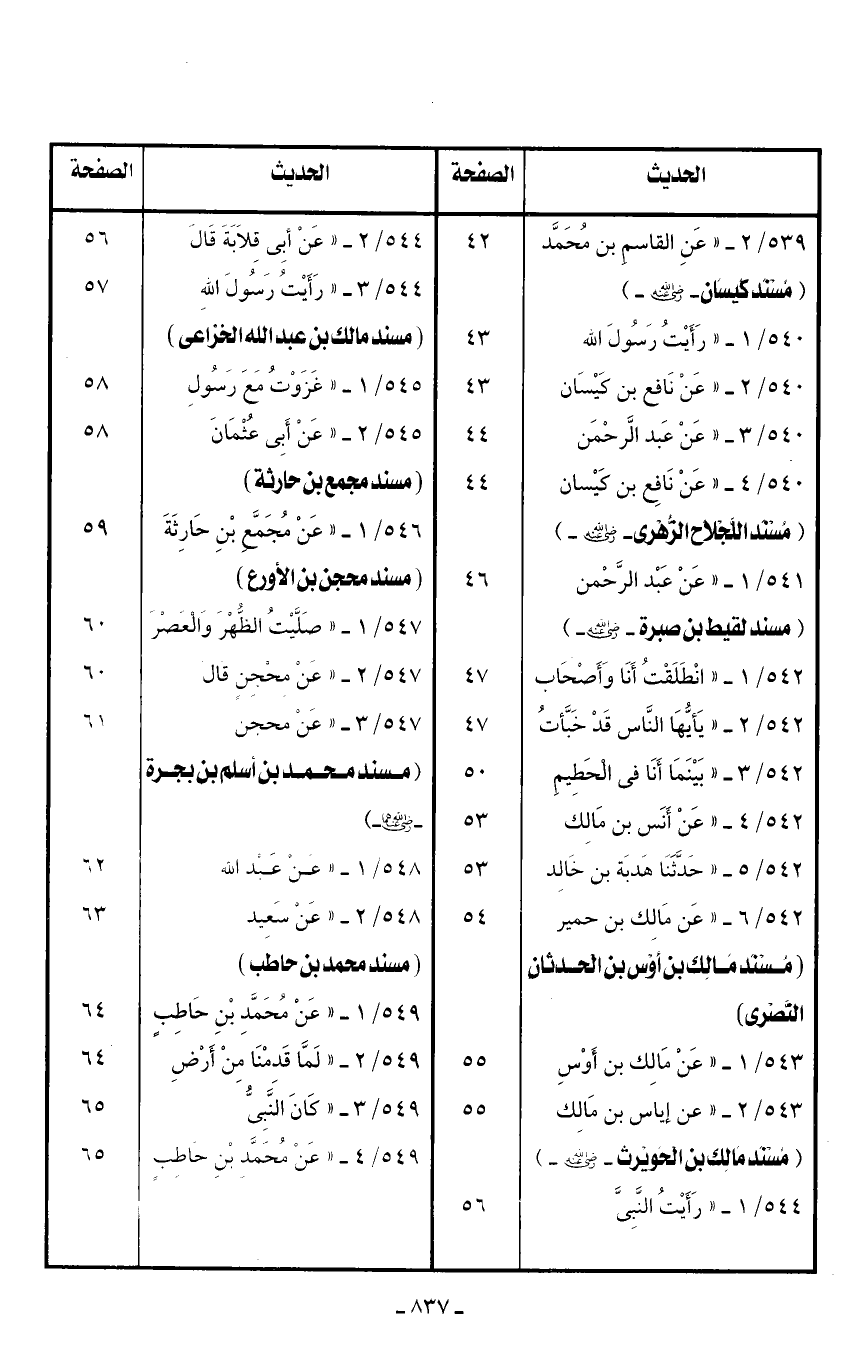 الحديث الصفحة
٥٣٩/ ٢ ـ « عَنِ القاسمِ بن مُحَمَّد ٤٢
( مُسْنَد كَيسَان ـ رضي الله عنه ـ )
٥٤٠/ ١ ـ « رَأَيْتُ رَسُولَ الله ٤٣
٥٤٠/ ٢ ـ « عَنْ نَافع بن كَيْسَان ٤٣
٥٤٠/ ٣ ـ « عَنْ عَبد الرَّحمَن ٤٤
٥٤٠/ ٤ ـ « عَنْ نَافِع بن كَيْسان ٤٤
( مُسْنَد اللَّجْلاح الزُّهْرى ـ رضي الله عنه ـ )
٥٤١/ ١ ـ « عَنْ عَبْد الرَّحْمن ٤٦
( مسند لقيط بن صبرة ـ رضي الله عنه ـ )
٥٤٢/ ١ ـ « انْطَلَقْتُ أَنَا وَأَصْحَاب ٤٧
٥٤٢/ ٢ ـ « يَأَيُّهَا النَّاس قَدْ خَبَّأتُ ٤٧
٥٤٢/ ٣ ـ « بَيْنَمَا أَنَا فى الْحَطِيمِ ٥٠
٥٤٢/ ٤ ـ « عَنْ أَنَس بن مَالِك ٥٣
٥٤٢/ ٥ ـ « حَدَّثَنَا هَدبَة بن خَالِد ٥٣
٥٤٢/ ٦ ـ « عَن مَالِك بن حمير ٥٤
( مُـسْنَد مَـالِك بن أوْس بن الحـدثان
النَّصْرى)
٥٤٣/ ١ ـ « عَنْ مَالِك بن أَوْسٍ ٥٥
٥٤٣/ ٢ ـ « عن إياس بن مَالِك ٥٥
( مُسْنَد مَالِك بن الحَوَيْرِث ـ رضي الله عنه ـ )
٥٤٤/ ١ ـ « رَأَيْتُ النَّبىَّ ٥٦
الحديث الصفحة
٥٤٤/ ٢ ـ « عَنْ أَبى قِلاَبَةَ قَالَ ٥٦
٥٤٤/ ٣ ـ « رَأَيْتُ رَسُولَ اللهِ ٥٧
( مسند مالك بن عبد الله الخزاعى )
٥٤٥/ ١ ـ « غَزَوْتُ مَعَ رَسُولِ ٥٨
٥٤٥/ ٢ ـ « عَنْ أَبى عُثْمَانَ ٥٨
( مسند مجمع بن حارثة )
٥٤٦/ ١ ـ « عَنْ مُجَمَّعِ بْنِ حَارِثَةَ ٥٩
( مسند محجن بن الأورع )
٥٤٧/ ١ ـ « صَلَّيْتُ الظُّهْرَ وَالْعَصْرَ ٦٠
٥٤٧/ ٢ ـ « عَنْ مِحْجنٍ قال ٦٠
٥٤٧/ ٣ ـ « عَنْ محجن ٦١
( مـسند محـمـد بـن أسلم بن بجـرة
ـ رضي الله عنهما ـ)
٥٤٨/ ١ ـ « عَـنْ عَـبْد الله ٦٢
٥٤٨/ ٢ ـ « عَنْ سَعِيد ٦٣
( مسند محمد بن حاطب )
٥٤٩/ ١ ـ « عَنْ مُحَمَّدِ بْنِ حَاطِبٍ ٦٤
٥٤٩/ ٢ ـ « لَمَّا قَدِمْنَا مِنْ أَرْضِ ٦٤
٥٤٩/ ٣ ـ « كَانَ النَّبىُّ ٦٥
٥٤٩/ ٤ ـ « عَنْ مُحَمَّدِ بْنِ حَاطِبٍ ٦٥
ـ ٨٣٧ ـ